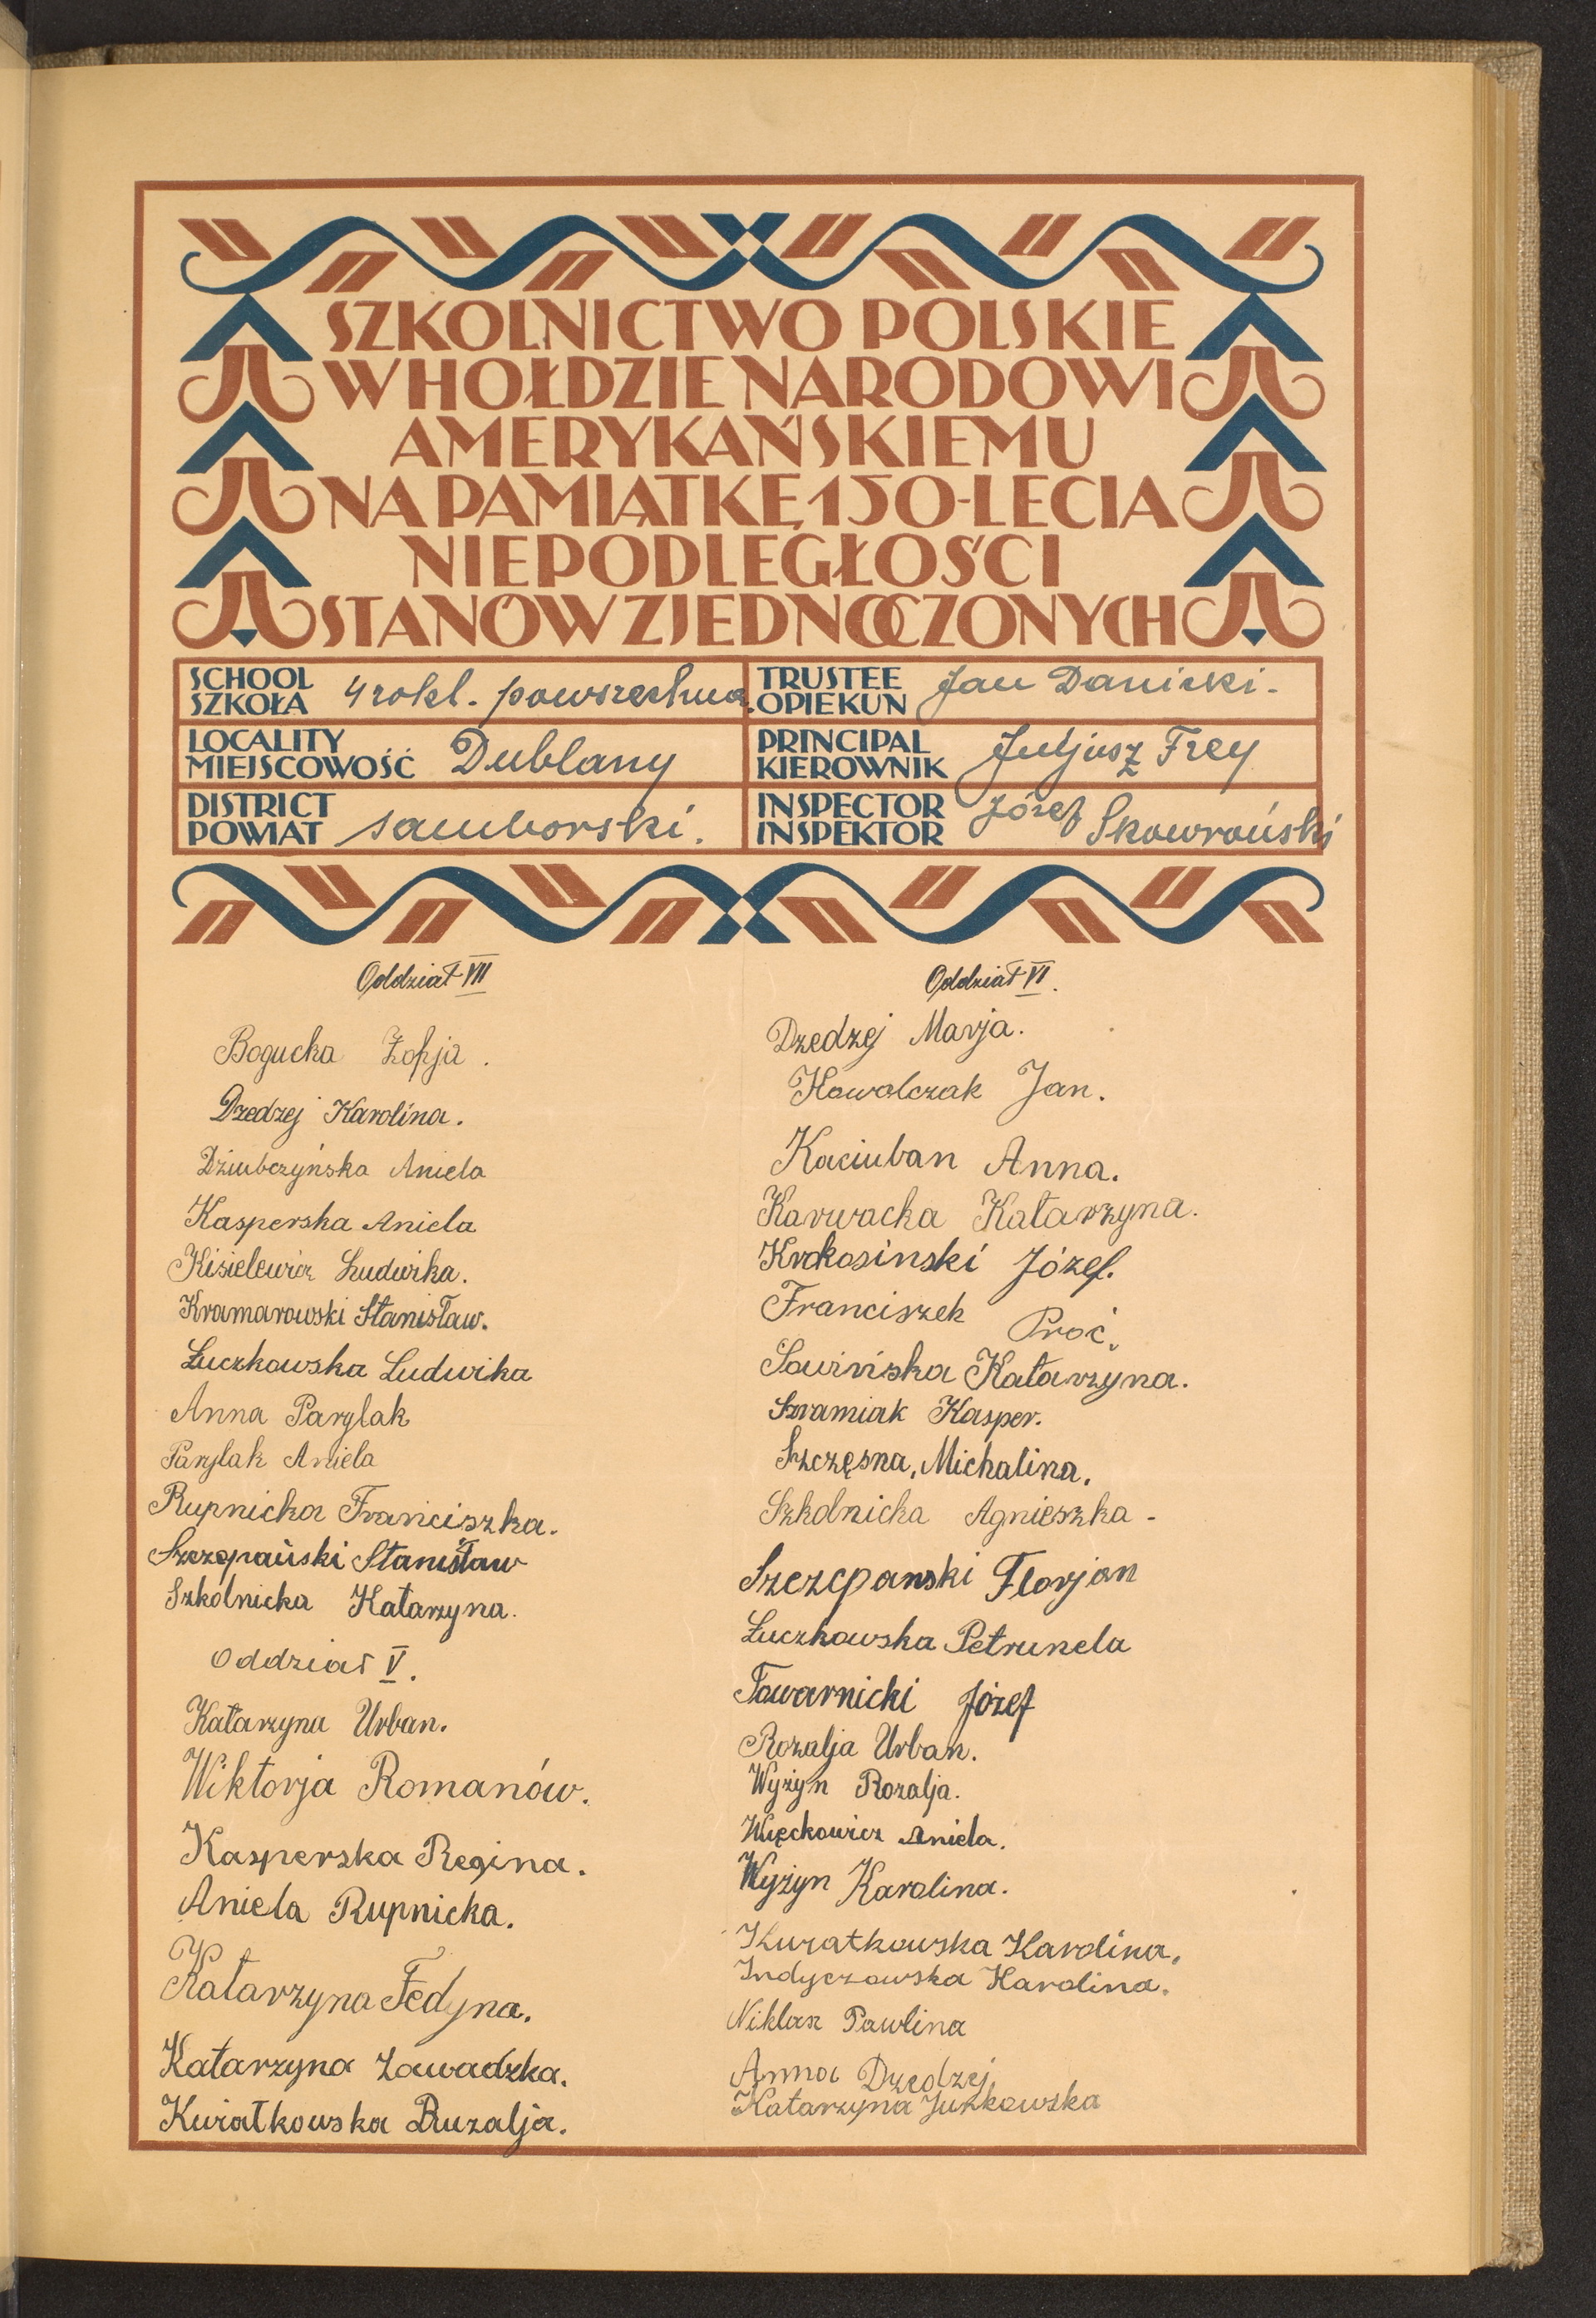 SZKOLNICTWO POLSKIE
W HOŁDZIE NARODOWI
AMERYKAŃSKIEMU
NA PAMIĄTKĘ 150-LECIA
NIEPODLEGŁOŚCI
STANÓW ZJEDNOCZONYCH
SCHOOL
SZKOŁA 4rokl. powszechna.
LOCALITY
MIEJSCOWOŚĆ Dublany
DISTRICT
POWIAT samborski.
TRUSTEE
OPIEKUN Jan Danicki.
PRINCIPAL
KIEROWNIK Juljusz Frey
INSPECTOR
INSPEKTOR Józef Skowroński
Oddział VII
Bogucka Zofja.
Dzedzej Karolina.
Dziubczyńska Aniela
Kasperska Aniela
Kisielewicz Ludwika.
Kramarowski Stanisław.
Łuczkowska Ludwika
Anna Parylak
Parylak Aniela
Rupnicka Franciszka.
Szczepański Stanisław
Szkolnicka Katarzyna.
Oddział V.
Katarzyna Urban.
Wiktorja Romanów.
Kasperska Regina.
Aniela Rupnicka.
Katarzyna Fedyna.
Katarzyna Zawadzka.
Kwiatkowska Ruzalja.
Oddział VI.
Dzedzej Marja.
Kowalczak Jan.
Kaciuban Anna.
Karwacka Katarzyna.
Krokosinski Józef.
Franciszek Proć.
Sawińska Katarzyna.
Szramiak Kasper.
Szczęsna, Michalina.
Szkolnicka Agnieszka -
Szczepanski Florjan
Łuczkowska Petrunela
Towarnicki Józef
Rozalja Urban.
Wyżyn Rozalja.
Więckowicz Aniela.
Wyżyn Karolina.
Kwiatkowska Karolina.
Indyczowska Karolina.
Niklas Pawlina
Anna Dzedzej.
Katarzyna Jurkowska